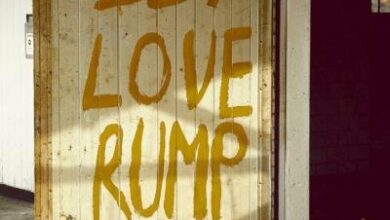 LOVE
RUMP